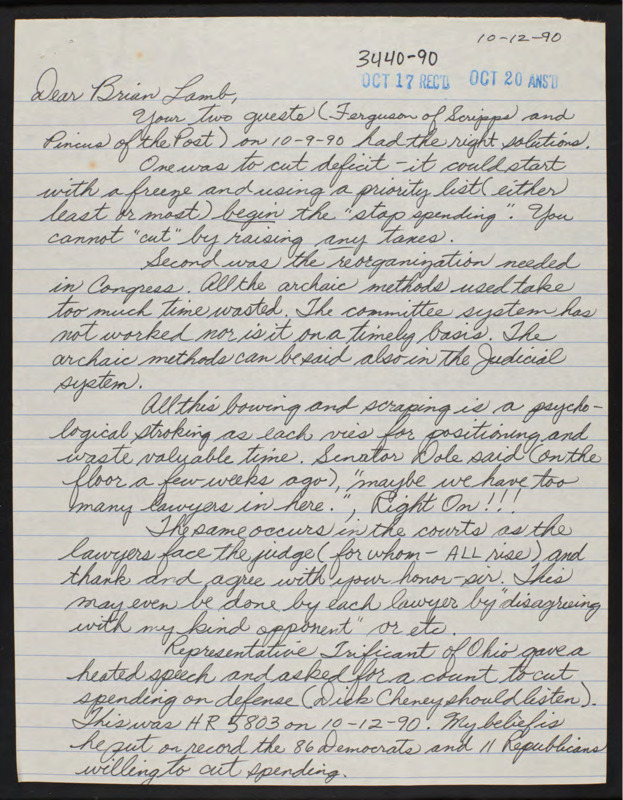 10-12-90
3440-90
OCT 17 REC'D OCT 20 ANS'D
Dear Brian Lamb,
Your two guests (Ferguson of Scripps and
Pincus of the Post) on 10-9-90 had the right solutions.
One was to cut deficit - it could start
with a freeze and using a priority list (either
least or most) begin the "stop spending". You
cannot "cut" by raising any taxes.
Second was the reorganization needed
in Congress. All the archaic methods used take
too much time wasted. The committee system has
not worked nor is it on a timely basis. The
archaic methods can be said also in the Judicial
system.
All this bowing and scraping is a psycho-
logical stroking as each vies for positioning and
waste valuable time. Senator Dole said (on the
floor a few weeks ago), "maybe we have too
many lawyers in here.", Right On!!!
The same occurs in the courts as the
lawyers face the judge (for whom - ALL rise) and
thank and agree with your honor-sir. This
may even be done by each lawyer by "disagreeing
with my kind opponent" or etc.
Representative Trificant of Ohio gave a
heated speech and asked for a count to cut
spending on defense (Dick Cheney should listen).
This was HR 5803 on 10-12-90. My belief is
he put on record the 86 Democrats and 11 Republicans
willing to cut spending.